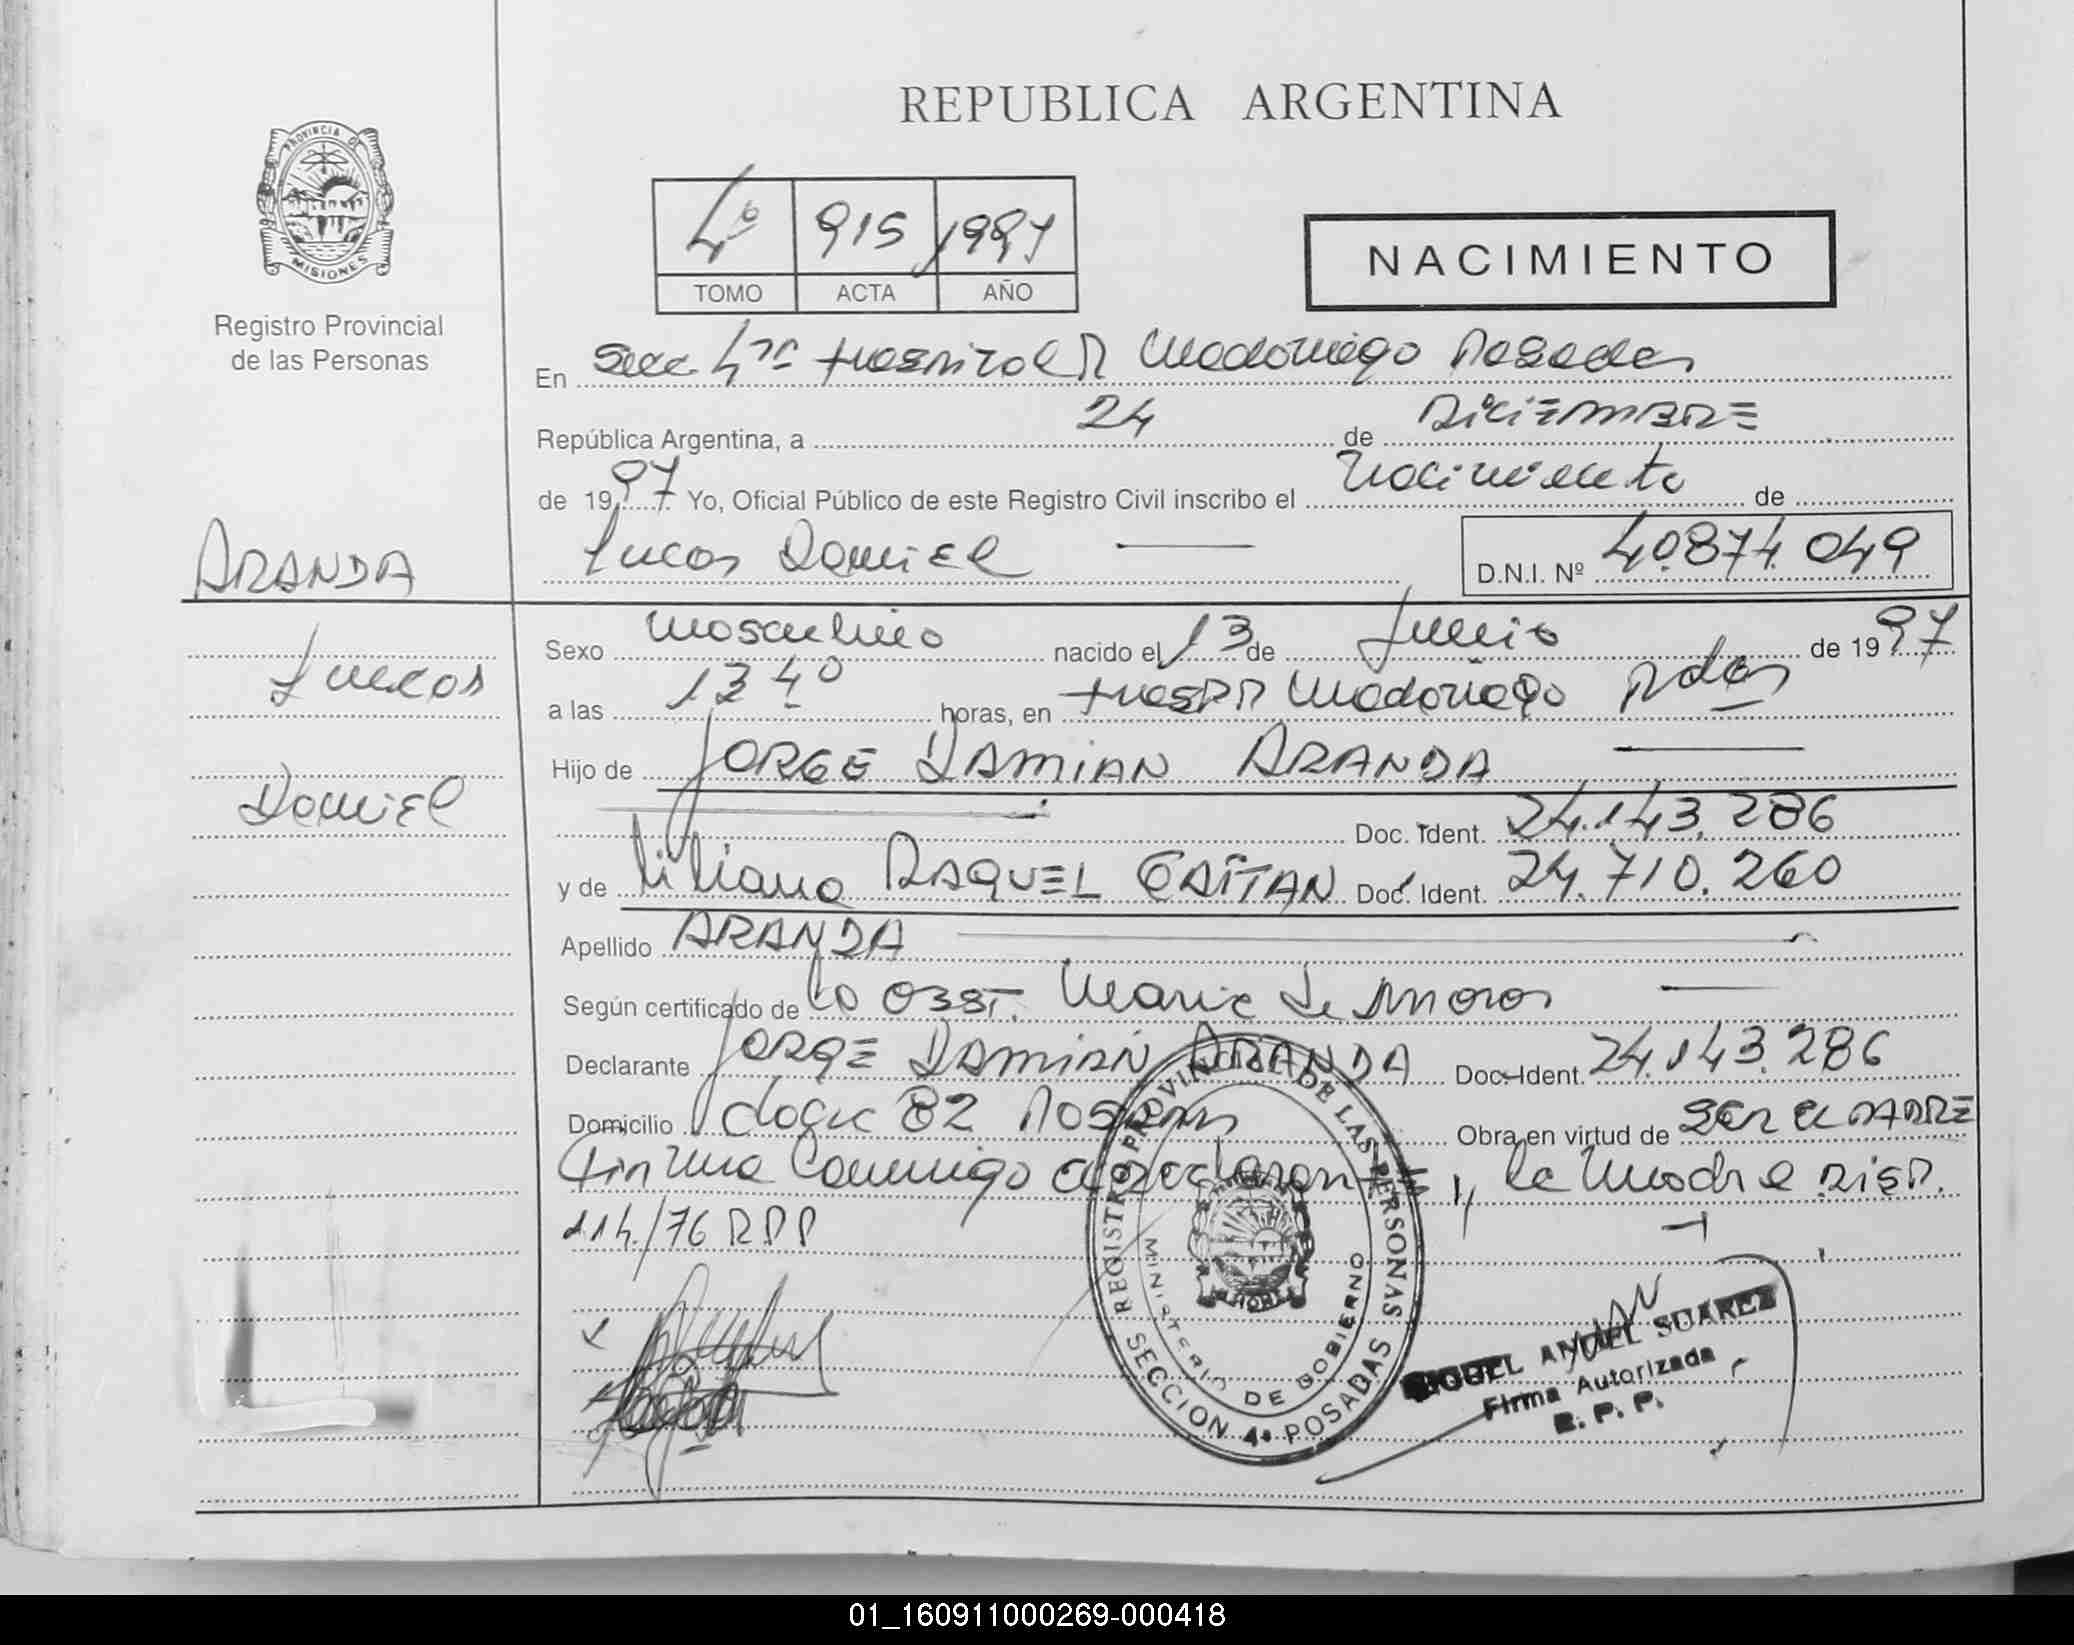 REPUBLICA ARGENTINA
PROVINCIA DE
MISIONES
Registro Provincial
de las Personas
4º 915 1997
TOMO ACTA AÑO
NACIMIENTO
En Secc 4ta Hospital R Madariaga Posadas
República Argentina, a 24 de DiCiEMBRE
de 1997 Yo, Oficial Público de este Registro Civil inscribo el Nacimiento de
ARANDA
Lucas DaniEl
D.N.I. Nº 40.874.049
Lucas
DaniEl
Sexo Masculino nacido el 13 de Junio de 1997
a las 13 40 horas, en Hosp R Madariaga Pdas
Hijo de JORGE DAMIAN ARANDA
Doc. Ident. 24.143.286
y de liliana RAQUEL GAITAN Doc. Ident. 24.710.260
Apellido ARANDA
Según certificado de la OBST. Maria de
Declarante JORGE DAMIAN ARANDA Doc. Ident. 24.143.286
Domicilio 82 Posadas Obra en virtud de SER El PADRE
Firma Conmigo el declarante y la Madre DISP.
114/76 RPP
REGISTRO PROVINCIAL DE LAS PERSONAS
MINISTERIO DE GOBIERNO
SECCION 4ª POSADAS
MIGUEL ANGEL SUAREZ
Firma Autorizada
R. P. P.
01_160911000269-000418